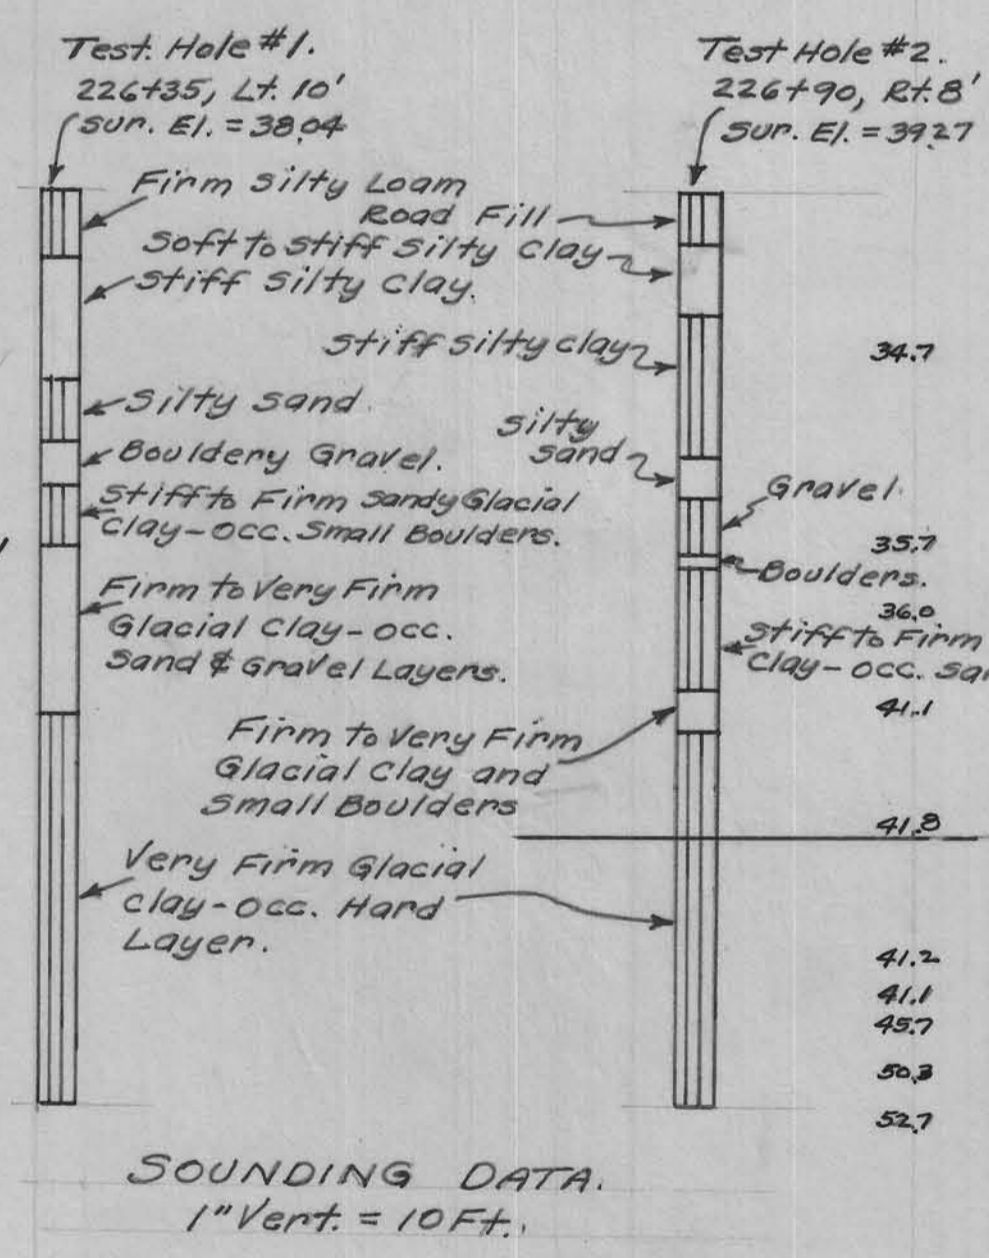 Test. Hole #1.
226+35, Lt. 10'
Sur. El. = 38.04
Firm Silty Loam
Stiff Silty Clay.
Silty Sand
Bouldery Gravel.
Stiff to Firm Sandy Glacial
Clay-Occ. Small Boulders.
Firm to Very Firm
Glacial Clay-Occ.
Sand & Gravel Layers.
Very Firm Glacial
Clay-Occ. Hard
Layer.
Test Hole #2.
226+90, Rt. 8'
Sur. El. = 39.27
Road Fill
Soft to Stiff Silty Clay
Stiff Silty Clay
Silty
Sand
Gravel
Boulders.
Stiff to Firm
Clay-Occ. San
Firm to Very Firm
Glacial Clay and
Small Boulders
34.7
35.7
36.0
41.1
41.8
41.2
41.1
45.7
50.3
52.7
SOUNDING DATA.
1" Vert. = 10 Ft.